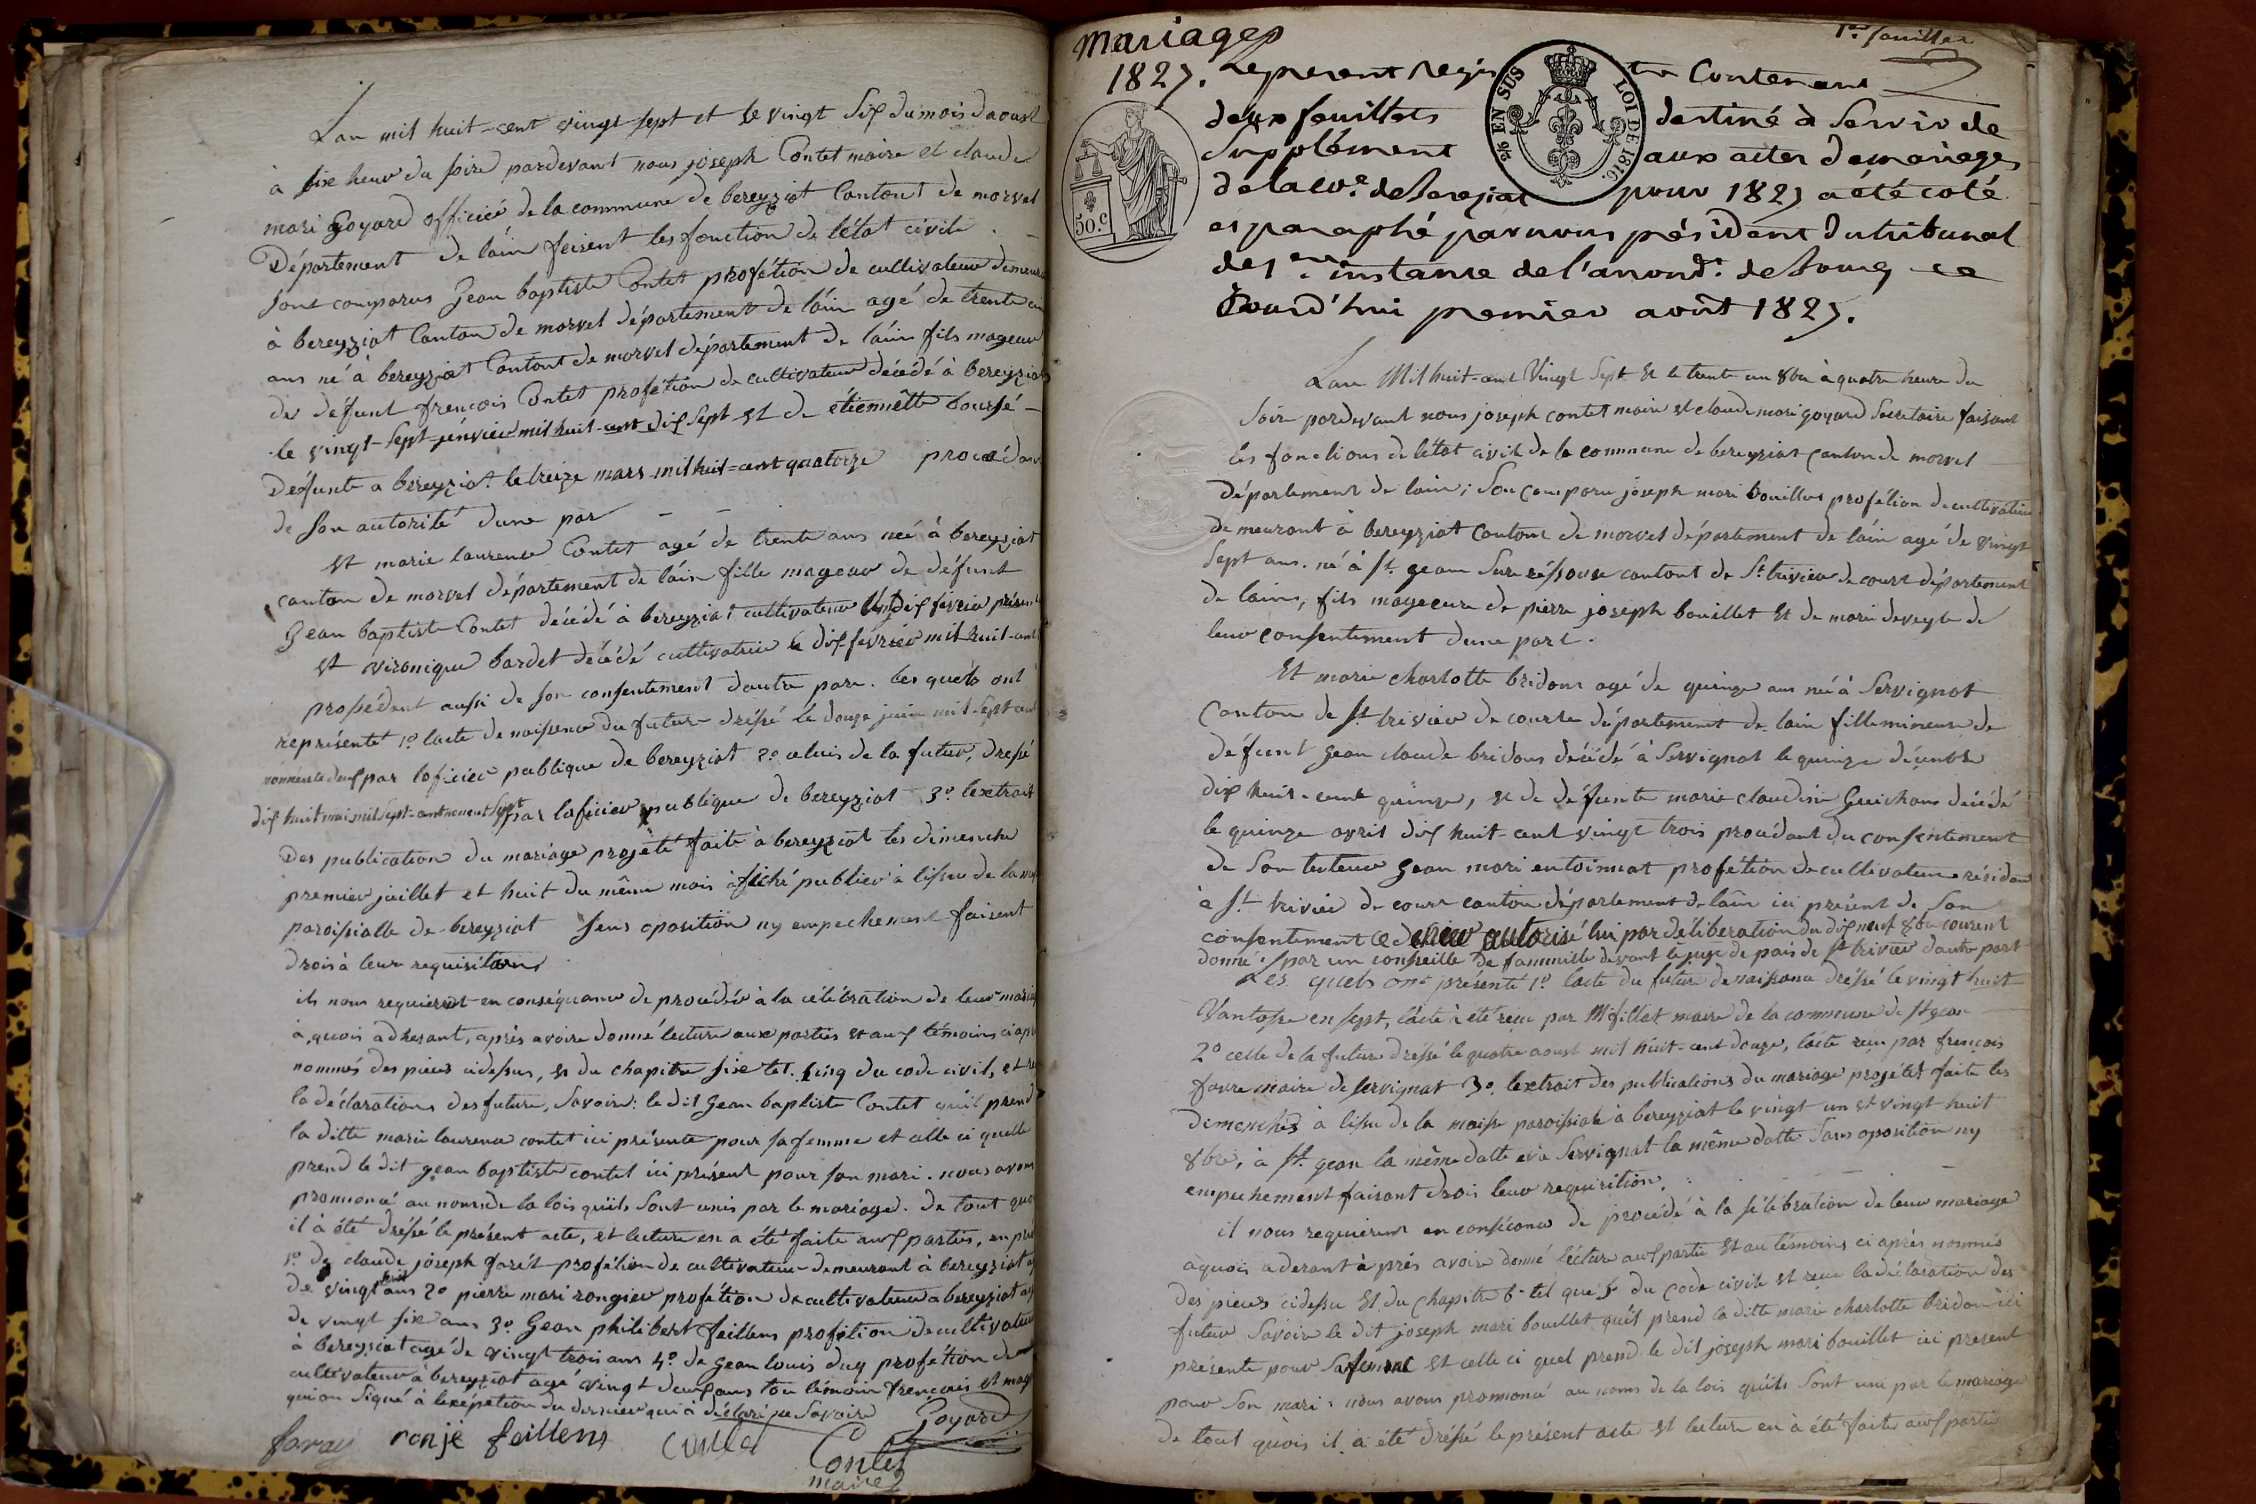 Lan mil huit-cent vingt sept et le vingt six du mois daoust
à sixe heur du soire pardevant nous joseph Contet maire et claude
mari Goyard officiée de la commune de bereyziat Cantont de morvel
Département de láin feisent les fonction de létat civile
sont comparus Gean baptiste Contet profétion de cultivateur demeura
à bereyziat Canton de morvel département de láin agé de trente
ans né à bereyziat Contont de morvel département de láin fils mageur
de défunt frencois Contet profétion de cultivateur décédé à bereyziat
le vingt-sept jenvier mil huit-cent dix sept et de étiennette boursé
deffunte a bereyziat le treize mars mil huit-cent quatorze procédant
de son autorité dune par
et marie laurence Contet agé de trente ans née à bereyziat
canton de morvel département de láin fille mageur de défunt
Gean baptiste Contet décédé à bereyziat cultivateur
et vironique bardet décédé cultivatrice le dix fevrier mil huit-cent
prossédent aussi de son consentement dautre pare. les quels ont
représenté 1o lacte de naissence du futur dréssé le douze juin mil sept cent
par loficier publique de bereyziat 2o celuis de la futur, dressé
dix huit mai mil sept-cent nonent sept par loficier publique de bereyziat 3o lextrait
des publication du mariage projété faite à bereyziat les dimenche
premier juillet et huit du même mois afiché publier à lissue de la
paroissialle de bereyziat sens oposition ny empechement faisent
drois à leur requisitions
ils nous requierent en conséquence de procédér à la célébration de leur mariag
à quois adhesant, aprés avoire donné lecture aux parties et aux témoins ci apr
nommés des pieces cidessus, et du chapitre sixe tit. cinq du code civil, et
la déclarations des future, savoire: le dit Gean baptiste Contet quil prend
la ditte marie laurence contet ici présente pour sa femme et celle ci quelle
prend le dit gean baptiste contet ici présent pour son mari. nous avons
prononcé au nom de la lois quils sont unis par le mariage. de tout quoi
il à été dréssé le présent acte, et lecture en a été faite aux parties, en
1o de claude joseph farét profétion de cultivateur demeurant à bereyziat
de vingt huit ans 2o pierre mari rongier profétion de cultivateur a bereyziat
de vingt sixe ans 3o Gean philibert feillens profétion de cultivateur
à bereyziat agé de vingt trois ans 4o de gean louis duy profétion de
cultivateur à bereyziat agé vingt deux ans tou témoin frencais et mag
qui on signé à lexépetion du dernier qui à déclaré ne savoire
Goyard
faray ronjé feillens Contet
Contet
maire
Mariages
1827.
1er feuillet
Le present registre Contenant
deux feuillets destiné à servir de
Supplément aux actes de mariages
de la Cne. de Bereziat pour 1827 a été coté
et paraphé par nous président du tribunal
de 1ere instance de l'arrond.t de Bourg ce
Jourd'hui premier août 1827.
2/6 EN SUS
LOI DE 1816.
50.c
Lan Mil huit-cent Vingt Sept et le trente un 8bre à quatre heure du
soire pardevant nous joseph contet maire et claude mari goyard Secretaire faisant
les fonctions de létat civil de la commune de bereyziat canton de morvel
département de lain; son comparu joseph mari bouillet profétion de cultivateur
demeurant à bereyziat Contont de morvel département de láin agé de vingt
sept ans. né à St. gean sur réssouse cantont de St trivier de court département
de lain, fils mageure de pierre joseph bouillet et de marie deveyle de
leur consentement dune part.
Et marie charlotte bridons agé de quinze ans né à Servignat
Canton de St trivier de courte département de lain fille mineur de
défunt gean claude bridons décédé à Servignat le quinze décenbre
dix huit-cent quinze, et de défunte marie claudine Guichans décédé
le quinze avril dix huit-cent vingt trois procédant du consentement
de son tuteur gean mari entoinnat profétion de cultivateur résidan
à St. trivier de cour canton département de láin ici présent de son
consentement ce dernier autorisé lui par déliberation du dix neuf 8bre courent
donné par un conseille de fammille devant le juge de pais de St trivier dautr part
Les quels ont présenté 1o lacte du futur de naissance dréssé le vingt huit
Vantose en sept, lacte à été recu par Mr fillat maire de la commune de St gean
2o celle de la future dréssé le quatre aoust mil huit-cent douze, lacte recu par frençois
favre maire de servignat 3o. lextrait des publications du mariage projétés faite les
demenches à lissue de la maisse paroissiale à bereyziat le vingt un et vingt huit
8bre, à St. gean la même datte et à Servignat la même datte sans oposition ny
empechement faisant drois leur requisition.
il nous requierent en conséconce de procédé à la sélébration de leur mariage
aquois aderant à prés avoire donné lécture aux partie et au témoins ci après nommés
des pieces cidessu et du chapitre 6 tel que 5 du code civile et recu la déclaration des
futur savoire le dit joseph mari bouillet quil prend la ditte marie charlotte bridon ici
présente pour sa femme et celle ci quel prend le dit joseph mari bouillet ici present
pour son mari: nous avons prononcé au noms de la lois quils sont uni par le mariage
de tout quois il à été dréssé le présent acte et lecture en à été faite aux partie